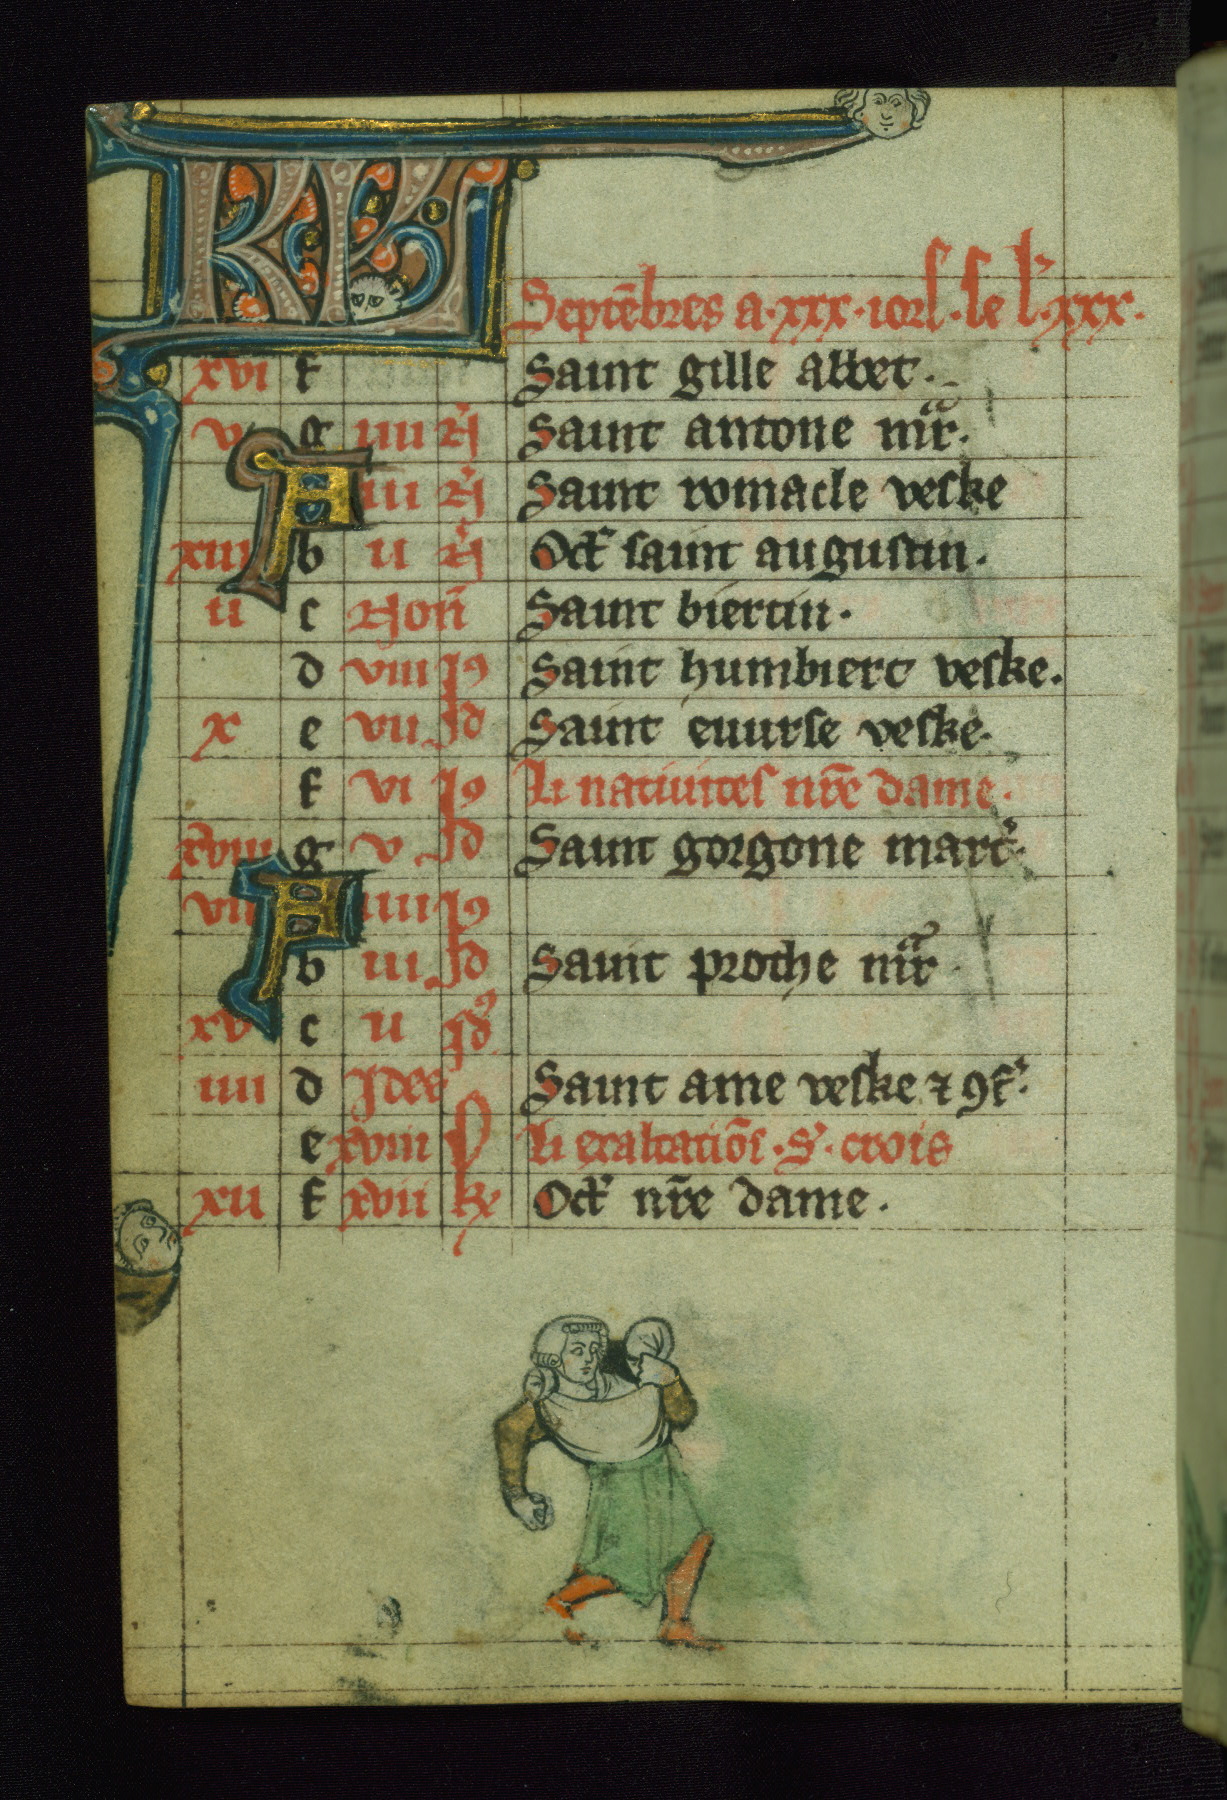 KL Septēbres a·xxx·iors·le l'·xxx·
xvi f Saint gille abbet·
v g iiii N' Saint antone mr̄·
A iii N' Saint romacle veske
xiii b ii N' Oct' saint augustin·
ii c Non' Saint biertin·
d viii Id Saint humbiert veske·
x e vii Id Saint euurse veske·
f vi Id Li natiuites nr̄e dame·
xviii g v Id Saint gorgone mart'·
vii A iiii Id
b iii Id Saint prothe mr̄·
xv c ii Id'
iiii d Idee Saint ame veske ⁊ 9f'·
e xviii Li exaltatiōs·S'·crois
xii f xvii kł Oct' nr̄e dame·